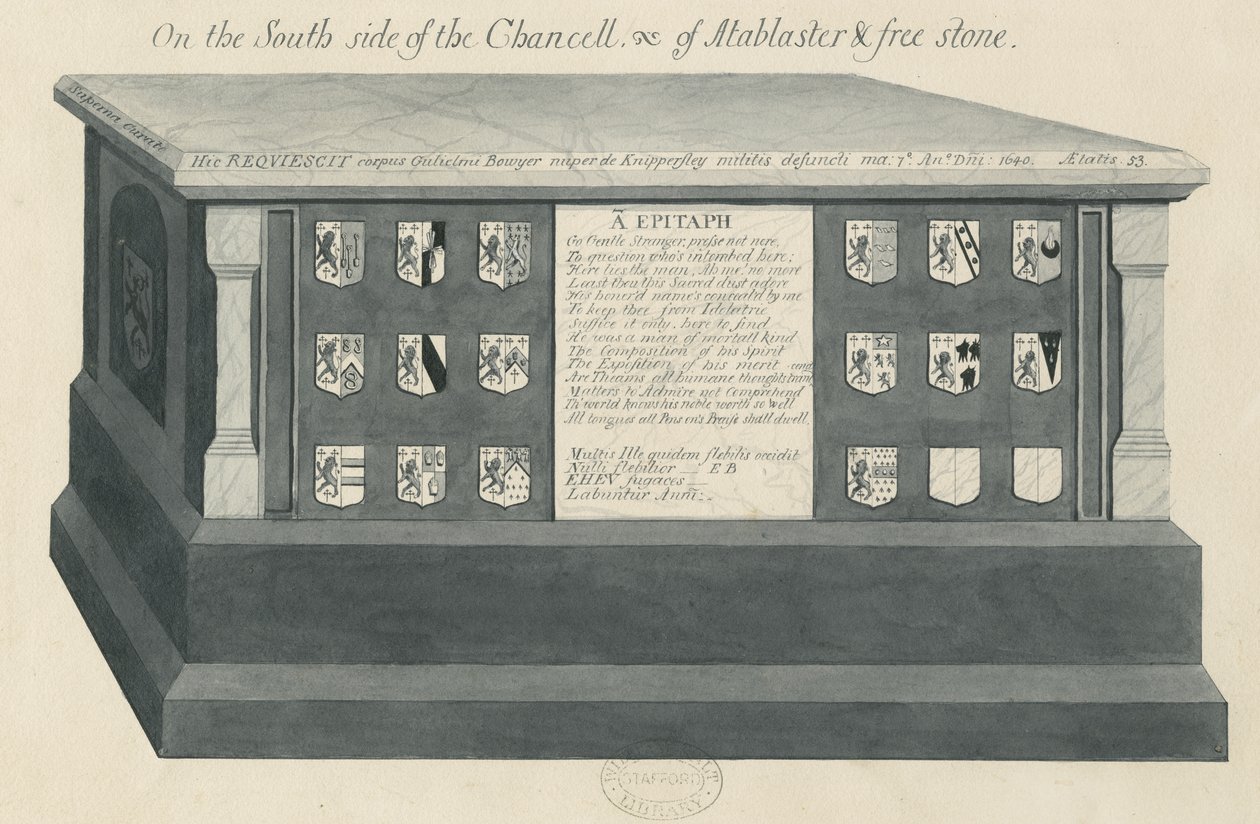 On the South side of the Chancell. of Atablaster & free stone.
Supeina Curate
Hic REQVIESCIT corpus Gulielmi Bowyer nuper de Knippersley militis defuncti ma: 7º. Anº. Dñi: 1640. Ætatis. 53.
Ā EPITAPH
Go Gentle Stranger, presse not nere,
To question who's intombed here;
Here lies the man, Ah me, no more
Least thou this Sacred dust adore
His honer'd name's conceal'd by me
To keep thee from Idolatrie
Suffice it only, here to find
He was a man of mortall kind
The Composition of his Spirit
The Exposition of his merit
Are Theams all humane thoughts
Matters to Admire not Comprehend
Th'world knows his noble worth so well
All tongues all Pens on's Praise shall dwell.
Multis Ille quidem flebilis occidit
Nulli flebilior __ E B
EHEV fugaces __
Labuntur Anni:-
STAFFORD
LIBRARY